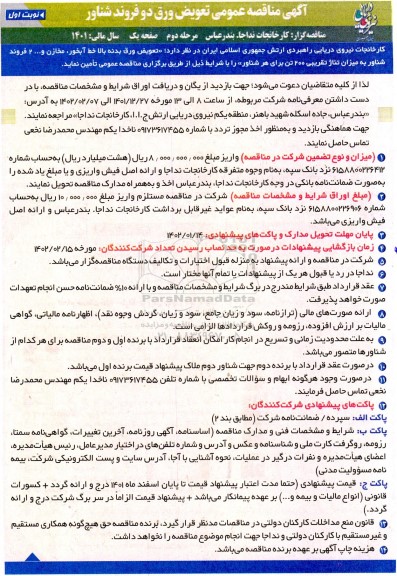 آگهی مناقصه عمومی تعویض ورق دو فروند شناور
نوبت اول
مناقصه‌گزار: کارخانجات نداجا، بندرعباس مرحله دوم صفحه یک سال مالی: ۱۴۰۱
کارخانجات نیروی دریایی راهبردی ارتش جمهوری اسلامی ایران در نظر دارد؛ «تعویض ورق بدنه بالا خط آبخور، مخازن و... ۲ فروند
شناور به میزان تناژ تقریبی ۲۰۰ تن برای هر شناور» را با شرایط ذیل از طریق برگزاری مناقصه عمومی تأمین نماید.
لذا از کلیه متقاضیان دعوت می‌شود؛ جهت بازدید از یگان و دریافت اوراق شرایط و مشخصات مناقصه، با در
دست داشتن معرفی‌نامه شرکت مربوطه، از ساعت ۸ الی ۱۳ مورخه ۱۴۰۱/۱۲/۲۷ الی ۱۴۰۲/۰۲/۰۷ به آدرس:
«بندرعباس، جاده اسکله شهید باهنر، منطقه یکم نیروی دریایی ارتش ج.ا.ا، کارخانجات نداجا» مراجعه نمایند.
جهت هماهنگی بازدید و به‌منظور اخذ مجوز تردد با شماره ۰۹۱۷۳۶۱۷۴۵۵ ناخدا یکم مهندس محمدرضا نخعی
تماس حاصل نمایند.
۱ (میزان و نوع تضمین شرکت در مناقصه) واریز مبلغ ۸,۰۰۰,۰۰۰,۰۰۰ ریال (هشت میلیارد ریال) به‌حساب شماره
۶۱۵۸۸۰۰۲۲۶۴۱۲ نزد بانک سپه، به‌نام وجوه متفرقه کارخانجات نداجا و ارائه اصل فیش واریزی و یا مبلغ یاد شده را
به‌صورت ضمانت‌نامه بانکی در وجه کارخانجات نداجا، بندرعباس اخذ و به‌همراه مدارک مناقصه تحویل نمایند.
۲ (مبلغ اوراق شرایط و مشخصات مناقصه) شرکت در مناقصه مستلزم واریز مبلغ ۱۰,۰۰۰,۰۰۰ ریال به‌حساب
شماره ۶۱۵۸۸۰۰۲۲۶۹۰۶ نزد بانک سپه، به‌نام عواید غیرقابل برداشت کارخانجات نداجا، بندرعباس و ارائه اصل
فیش واریزی می‌باشد.
۳ پایان مهلت تحویل مدارک و پاکت‌های پیشنهادی: ۱۴۰۲/۰۱/۱۴
۴ زمان بازگشایی پیشنهادات درصورت به حد نصاب رسیدن تعداد شرکت‌کنندگان: مورخه ۱۴۰۲/۰۲/۱۵
۵ شرکت در مناقصه و ارائه پیشنهاد به منزله قبول اختیارات و تکالیف دستگاه مناقصه‌گزار می‌باشد.
۶ نداجا در رد یا قبول هر یک از پیشنهادات یا تمام آنها مختار است.
۷ عقد قرارداد طبق شرایط مندرج در برگ شرایط و مشخصات مناقصه و با ارائه ۱۰% ضمانت‌نامه حسن انجام تعهدات
صورت خواهد پذیرفت.
۸ ارائه صورت‌های مالی (ترازنامه، سود و زیان جامع، سود و زیان، گردش وجوه نقد)، اظهارنامه مالیاتی، گواهی
مالیات بر ارزش افزوده، رزومه و روکش قراردادها الزامی است.
۹ به علت محدودیت زمانی و تسریع در انجام کار امکان انعقاد قرارداد با برنده اول و دوم مناقصه برای هر کدام از
شناورها متصور می‌باشد.
۱۰ درصورت عقد قرارداد با برنده دوم جهت شناور دوم ملاک پیشنهاد قیمت برنده اول می‌باشد.
۱۱ در صورت وجود هرگونه ابهام و سؤالات تخصصی با شماره تلفن ۰۹۱۷۳۶۱۷۴۵۵ ناخدا یکم مهندس محمدرضا
نخعی تماس حاصل فرمایند.
۱۲ پاکت‌های پیشنهادی شرکت‌کنندگان:
پاکت الف: سپرده / ضمانت‌نامه شرکت (مطابق بند ۲)
پاکت ب: شرایط و مشخصات فنی و مدارک مناقصه (اساسنامه، آگهی روزنامه، آخرین تغییرات، گواهی‌نامه سمتا،
رزومه، روگرفت کارت ملی و شناسنامه و عکس و آدرس و شماره تلفن‌های در اختیار مدیرعامل، رئیس هیأت‌مدیره،
اعضای هیأت‌مدیره و نفرات درگیر در عملیات، نحوه آشنایی با آجا، آدرس سایت و پست الکترونیکی شرکت، بیمه
نامه مسؤولیت مدنی)
پاکت ج: قیمت پیشنهادی (حتما مدت اعتبار پیشنهاد قیمت تا پایان اسفند ماه ۱۴۰۱ درج و ارائه گردد + کسورات
قانونی (انواع مالیات و بیمه و...) بر عهده پیمانکار می‌باشد + پیشنهاد قیمت الزاماً در سر برگ شرکت درج و ارائه
گردد.)
۱۳ قانون منع مداخلات کارکنان دولتی در مناقصات مدنظر قرار گیرد، برنده مناقصه حق هیچ‌گونه همکاری مستقیم
و غیرمستقیم با کارکنان دولتی و نداجا جهت انجام موضوع مناقصه را نخواهد داشت.
۱۴ هزینه چاپ آگهی بر عهده برنده مناقصه می‌باشد.
ParsNamadData